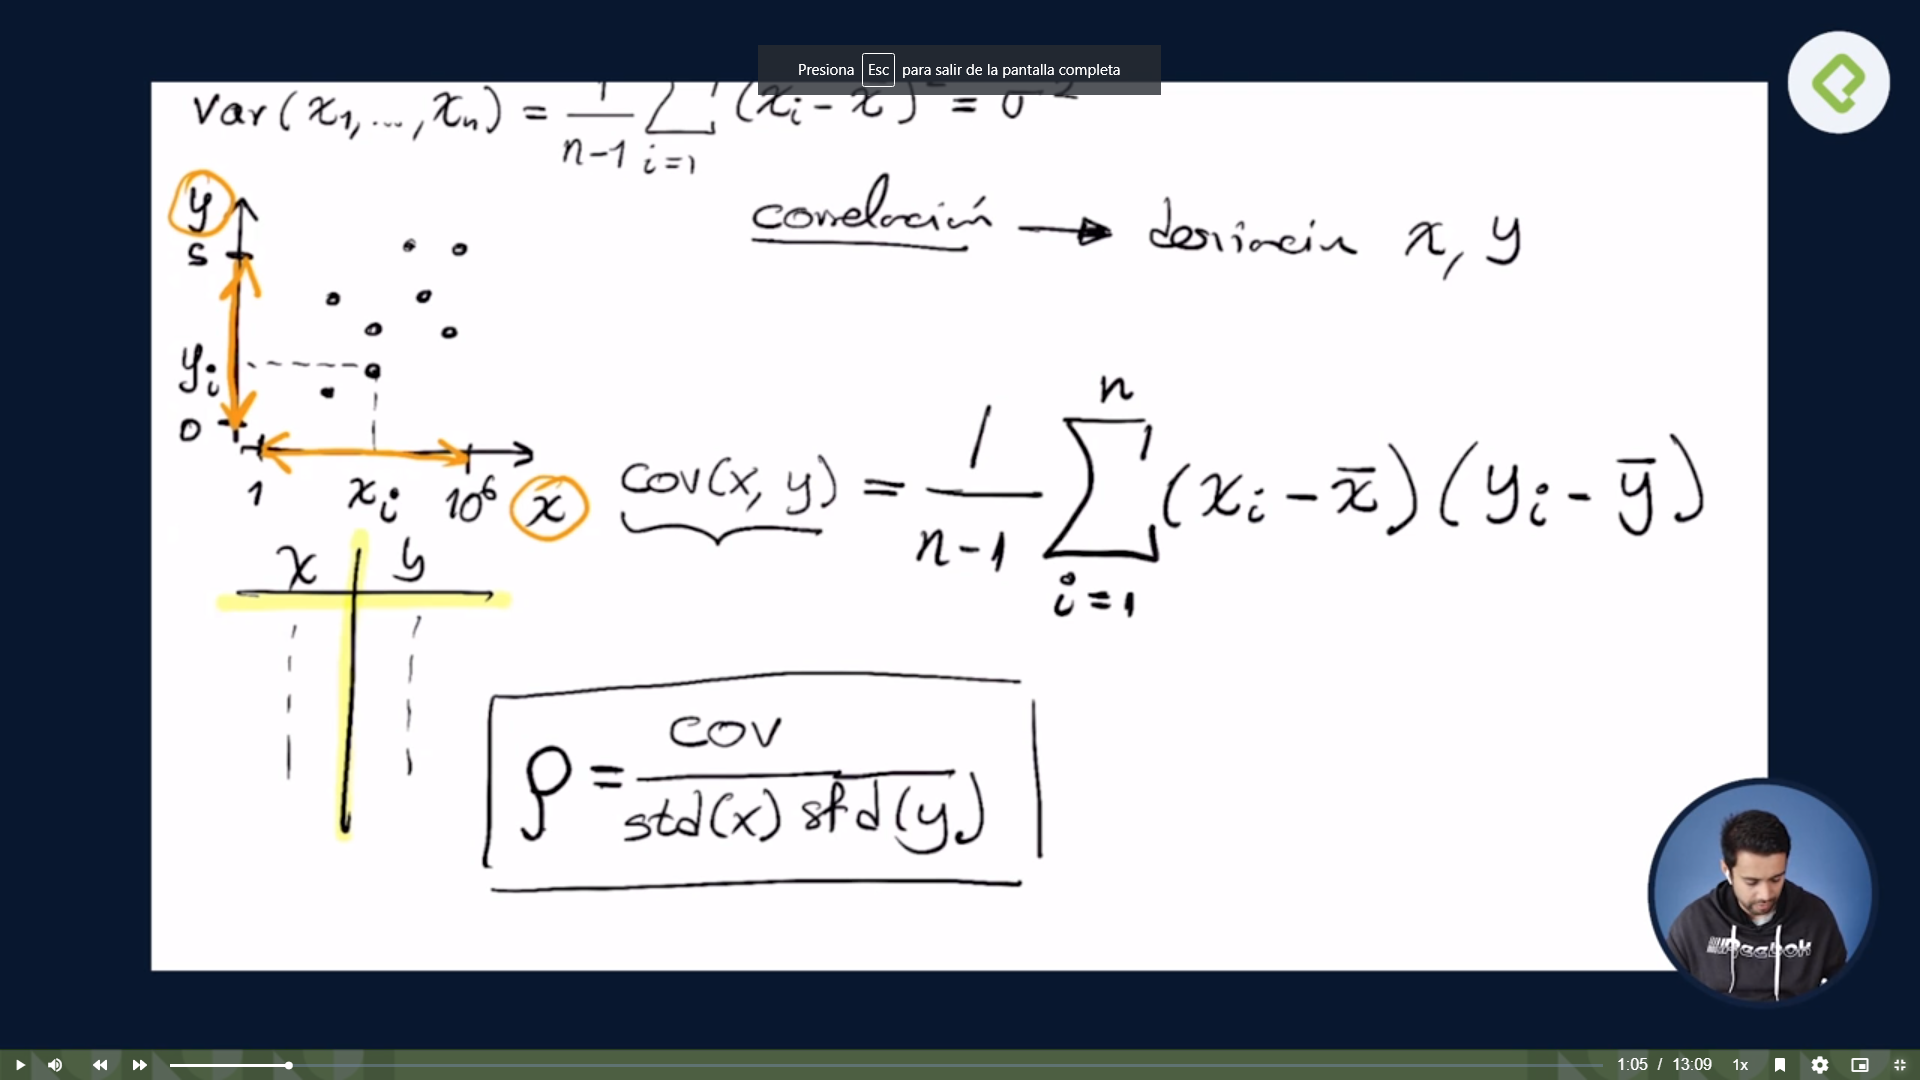 Presiona Esc para salir de la pantalla completa
Var(x₁,...,xₙ) = 1/n-1 Σ i=1 (xᵢ - x̄)² = σ²
correlación → desviación x, y
y
5
yᵢ
0
1 xᵢ 10⁶ x
cov(x, y) = 1/n-1 Σ n i=1 (xᵢ - x̄)(yᵢ - ȳ)
x y
ρ = cov / std(x) std(y)
Reebok
1:05 / 13:09 1x